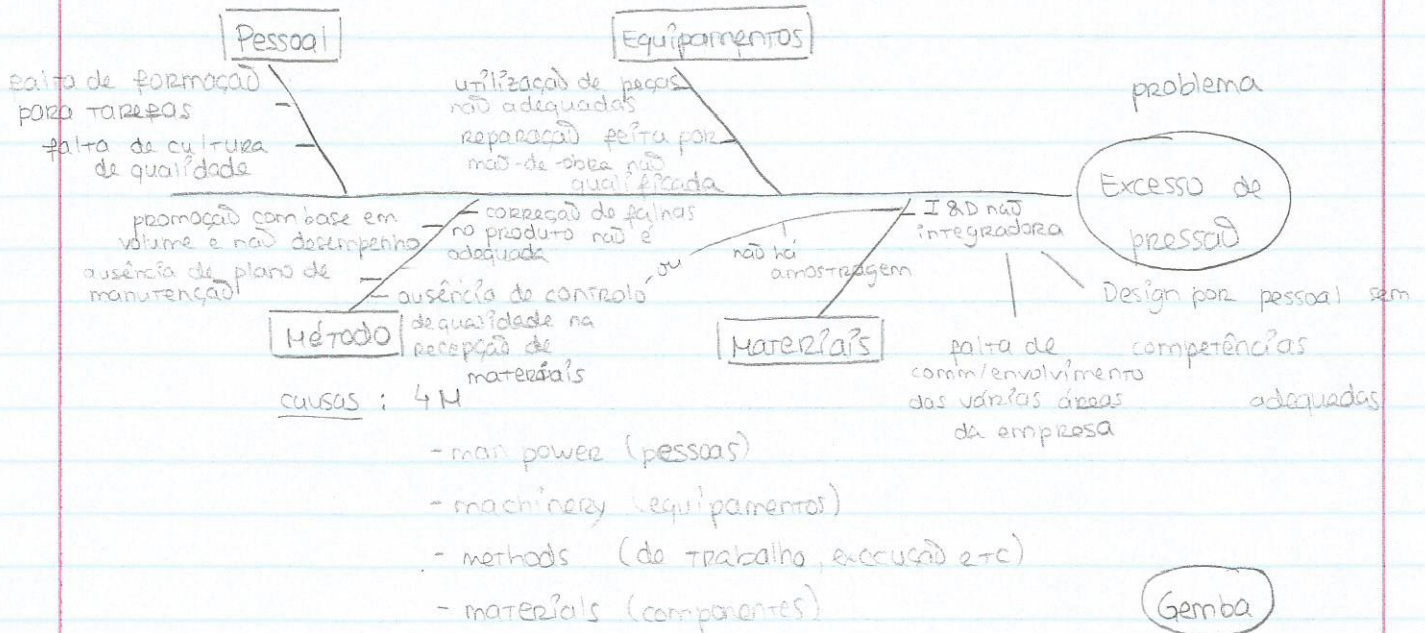 Pessoal
falta de formação
para tarefas
falta de cultura
de qualidade
Equipamentos
utilização de peças
não adequadas
reparação feita por
mão-de-obra não
qualificada
problema
Excesso de
pressão
promoção com base em
volume e não desempenho
ausência de plano de
manutenção
Método
correção de falhas
no produto não é
adequada
ausência de controlo
de qualidade na
recepção de
materiais
ou
não há
amostragem
Materiais
I&D não
integradora
falta de
comm/envolvimento
das várias áreas
da empresa
Design por pessoal sem
competências
adequadas
causas : 4M
- man power (pessoas)
- machinery (equipamentos)
- methods (de trabalho, execução etc)
- materials (componentes)
Gemba